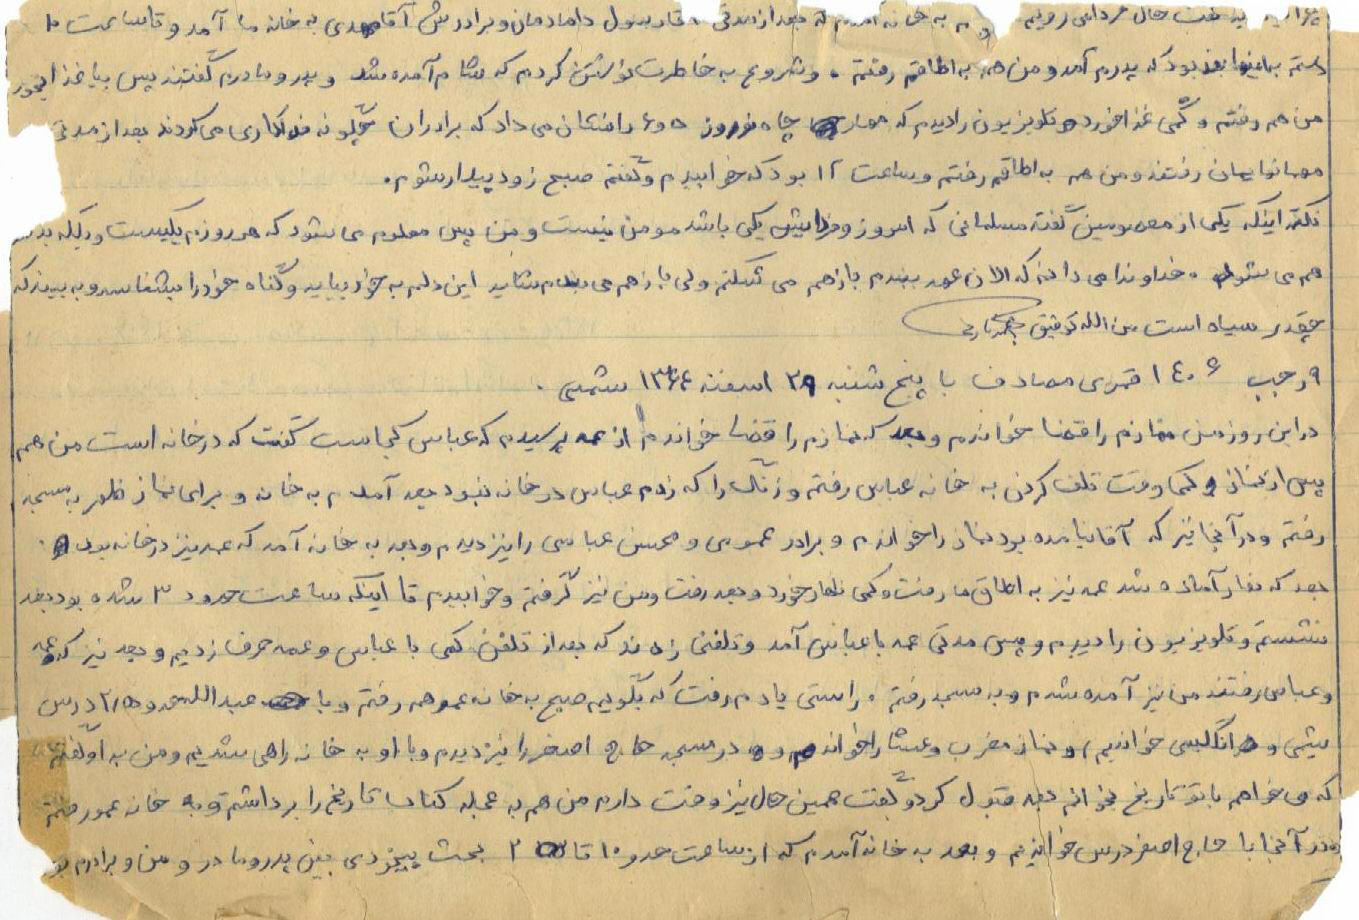 به خانه آمدم که بعد از مدتی رسول دامادمان و برادرش به خانه ما آمد و تا ساعت ۱۰
بود که پدرم آمد و من هم به اطاقم رفتم . و شروع به خاطرات نوشتن کردم که شام آمده شد و پدر و مادرم گفتند پس بیا غذا بخور
من هم رفتم و کمی غذا خوردم تلویزیون را دیدم که چاه نوروز را نشان می داد که برادران چگونه فداکاری می کردند بعد از مدتی
مهمانهایمان رفتند و من هم به اطاقم رفتم و ساعت ۱۲ بود که خوابیدم و گفتم صبح زود بیدار شوم .
نکته اینکه یکی از معصومین گفته مسلمانی که امروز و فردایش یکی باشد مومن نیست و من پس معلوم می شود که هر روزم یکیست و بلکه بدتر
هم می شود . خداوندا می دانم که الان عهد ببندم باز هم می شکنم ولی باز هم می بندم شاید این دلم به خود بیاید و گناه خود را بشناسد و به بیند که
چقدر سیاه است من الله توفیق
۹ رجب ۱٤۰۶ قمری مصادف با پنج شنبه ۲۹ اسفند ۱۳۶٤ شمسی .
در این روز من نمازم را قضا خواندم و بعد که نمازم را قضا خواندم از عمه پرسیدم که عباس کجاست گفت که در خانه است من هم
پس از نماز و کمی وقت تلف کردن به خانه عباس رفتم و زنگ را که زدم عباس در خانه نبود بعد آمدم به خانه و برای نماز ظهر به مسجد
رفتم و در آنجا نیز که آقا نیامده بود نماز را خواندم و برادر عمویی و محسن عباسی را نیز دیدم و بعد به خانه آمد که عمه نیز در خانه بود .
بعد که نهار آماده شد عمه نیز به اطاق ما رفت و کمی نهار خورد و بعد رفت و من نیز گرفتم و خوابیدم تا اینکه ساعت حدود ۳ شده بود بعد
نشستم و تلویزیون را دیدم و پس مدتی عمه با عباس آمد و تلفنی زدند که بعد از تلفن کمی با عباس و عمه حرف زدیم و بعد نیز که عمه
و عباس رفتند من نیز آمده شدم و به مسجد رفتم . راستی یادم رفت که بگویم صبح به خانه عمو هم رفتم و با عبدالله درس
شیمی و انگلیسی خواندیم ) و نماز مغرب و عشا را خواندم و در مسجد حاج اصغر را نیز دیدم و با او به خانه راهی شدیم و من به او گفتم
که می خواهم با تو تاریخ بخوانم بعد قبول کرد و گفت همین حال نیز وقت دارم من هم به عجله کتاب تاریخ را برداشتم و به خانه عمو رفتم
و در آنجا با حاج اصغر درس خواندیم و بعد به خانه آمدم که از ساعت حدود ۱۰ تا ۲ بحث بیخودی بین پدر و مادر و من و برادرم